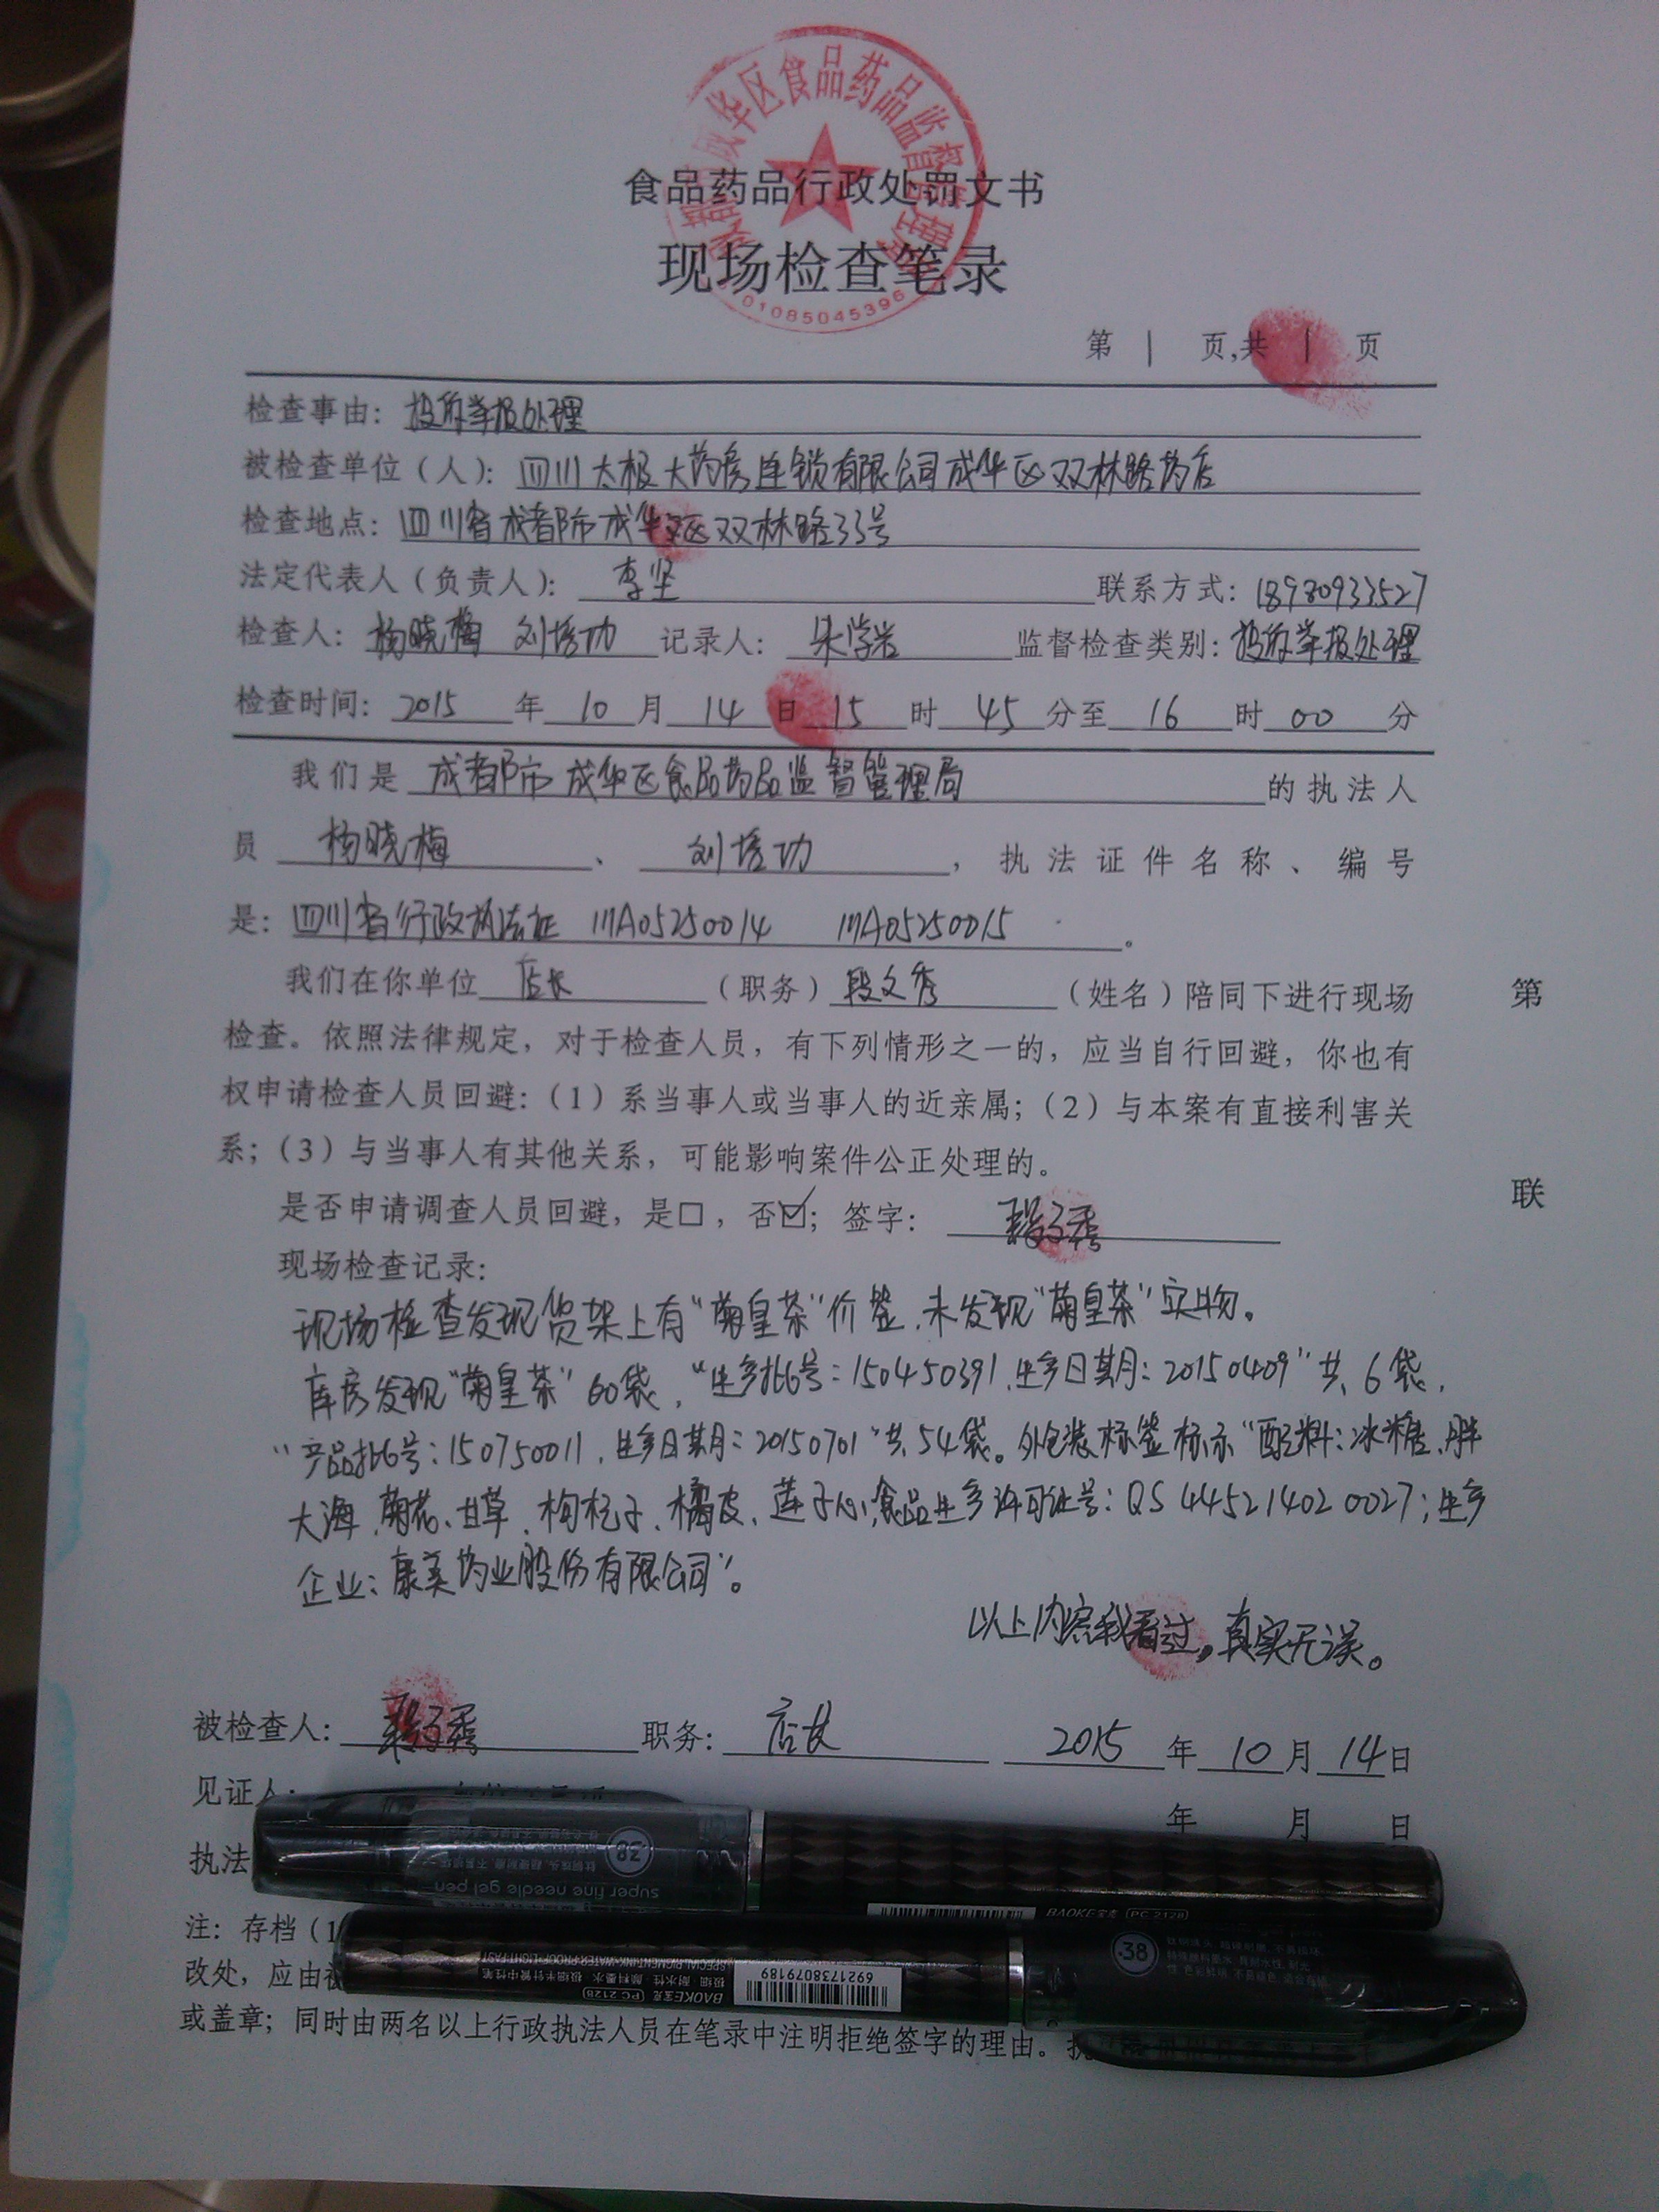 食品药品行政处罚文书
现场检查笔录
01085045396
第 1 页,共 1 页
检查事由：投诉举报处理
被检查单位（人）：四川太极大药房连锁有限公司成华区双林路药店
检查地点：四川省成都市成华区双林路33号
法定代表人（负责人）：李坚 联系方式：18980933527
检查人：杨晓梅 刘培功 记录人：朱学岩 监督检查类别：投诉举报处理
检查时间：2015 年 10 月 14 日 15 时 45 分至 16 时 00 分
我们是 成都市成华区食品药品监督管理局 的执法人
员 杨晓梅 、 刘培功 ，执法证件名称、编号
是：四川省行政执法证 川A05250014 川A05250015 。
我们在你单位 店长 （职务）段文秀 （姓名）陪同下进行现场 第
检查。依照法律规定，对于检查人员，有下列情形之一的，应当自行回避，你也有
权申请检查人员回避：（1）系当事人或当事人的近亲属；（2）与本案有直接利害关
系；（3）与当事人有其他关系，可能影响案件公正处理的。
联
是否申请调查人员回避，是□，否☑；签字：段文秀
现场检查记录：
现场检查发现货架上有“菊皇茶”价签，未发现“菊皇茶”实物。
库房发现“菊皇茶”60袋，“生产批号：150450391，生产日期：20150409”共6袋，
“产品批号：150750011，生产日期：20150701”共54袋。外包装标签标示“配料：冰糖、胖
大海、菊花、甘草、枸杞子、橘皮、莲子心；食品生产许可证号：QS 4452 1402 0027；生产
企业：康美药业股份有限公司”。
以上内容我看过，真实无误。
被检查人：段文秀 职务：店长 2015 年 10 月 14 日
见证人： 年 月 日
执法
.38
super fine needle gel pen
BAOKE宝克 PC 2128
注：存档（1
.38
改处，应由被
SPECIAL PIGMENT INK WATER-PROOF LIGHT-FAST
BAOKE宝克 PC 2128
6921738079189
或盖章；同时由两名以上行政执法人员在笔录中注明拒绝签字的理由。执